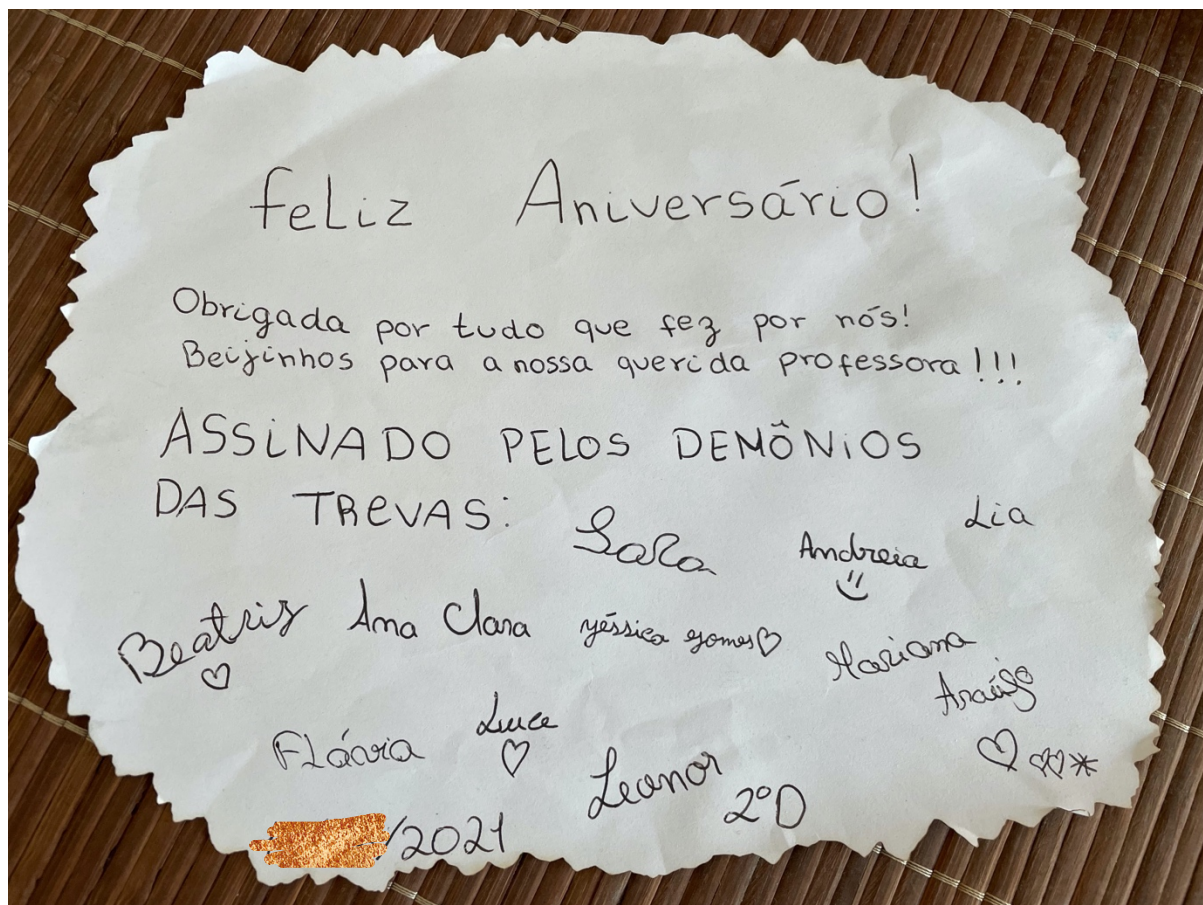 feliz Aniversário!
Obrigada por tudo que fez por nós!
Beijinhos para a nossa querida professora!!!
ASSINADO PELOS DEMÔNIOS
DAS TREVAS:
Sara Andreia Lia
Beatriz Ana Clara yéssica gomes Mariana
Araújo
Flávia Luce
Leonor
2ºD
/2021